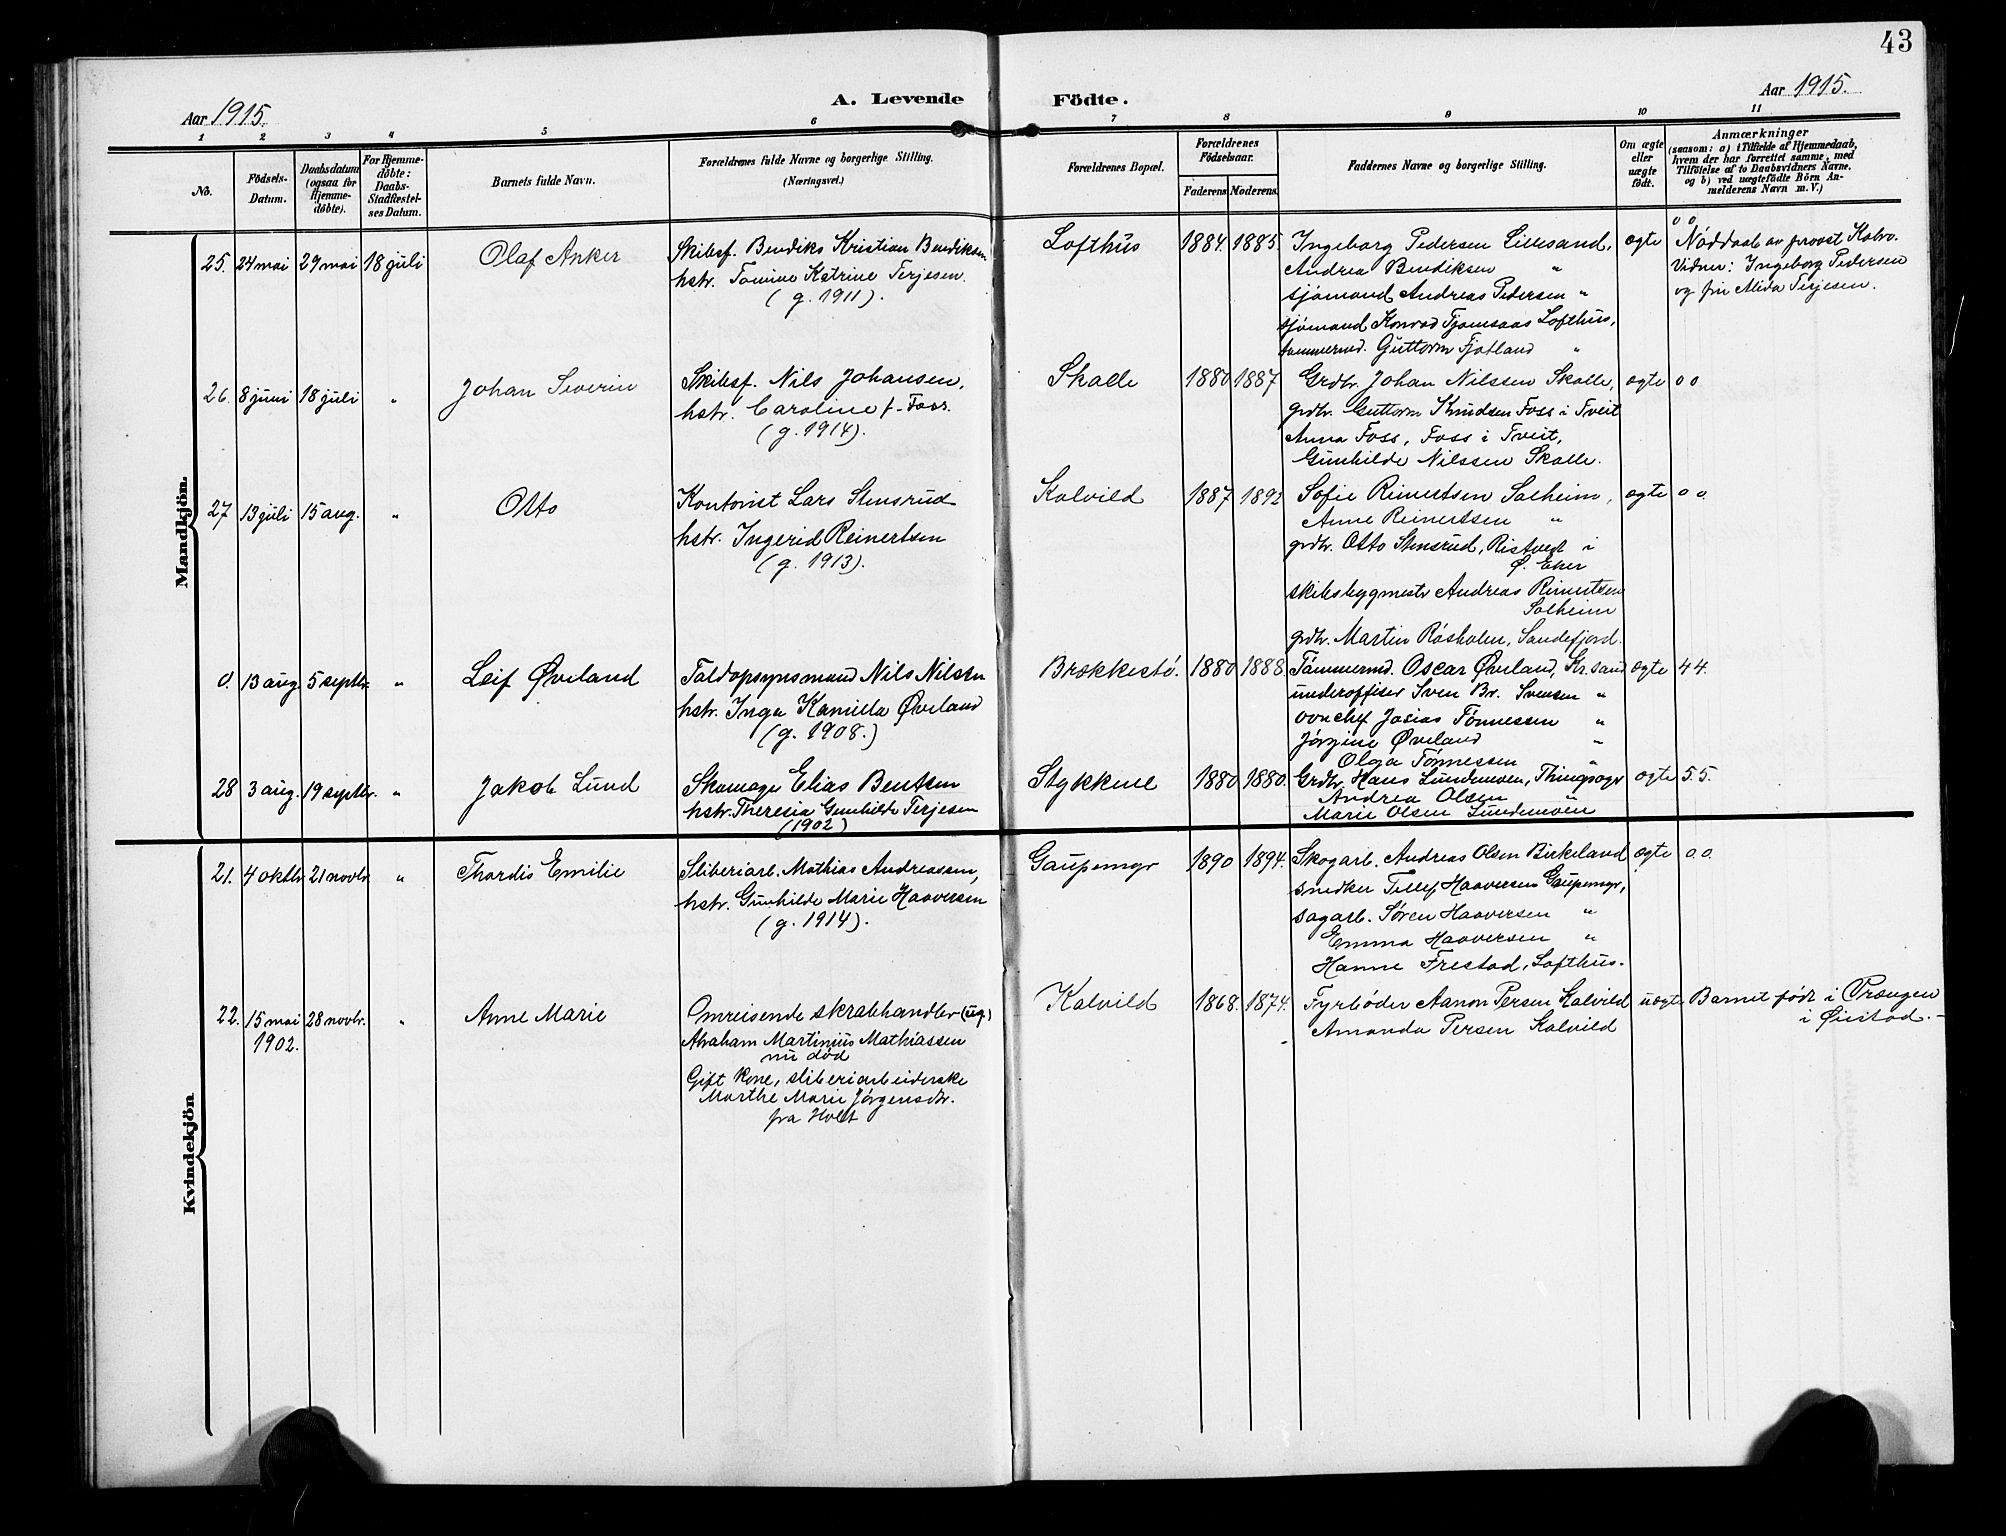 43
Aar 1915.
A. Levende Födte.
Aar 1915.
1 2 3 4 5 6 7 8 9 10 11
No.
Födsels-
Datum.
Daabsdatum
(ogsaa for
Hjemme-
døbte).
For Hjemme-
döbte:
Daabs-
Stadfæstel-
ses Datum.
Barnets fulde Navn.
Forældrenes fulde Navne og borgerlige Stilling.
(Næringsvei.)
Forældrenes Bopæl.
Forældrenes
Födselsaar.
Faderens Moderens.
Faddernes Navne og borgerlige Stilling.
Om ægte
eller
uægte
født.
Anmærkninger
(saasom: a) i Tilfælde af Hjemmedaab,
hvem der har forrettet samme, med
Tilføielse af to Daabsvidners Navne.
og b) ved uægtefødte Börn An-
melderens Navn m. V.)
Mandkjön.
25. 24 mai 29 mai 18 juli Olaf Anker
Skibsf. Bendiks Kristian Bendiksen
hstr. Tomine Katrine Terjesen.
(g. 1911).
Lofthus 1884. 1885.
Ingeborg Pedersen Lillesand,
Andrea Bendiksen "
sjømand Andreas Pedersen "
sjømand Konrad Tjomsaas Lofthus,
tømmermd. Guttorm Fjotland "
ægte
0 0
Nøddaab av provst Kalvo.
Vidner: Ingeborg Pedersen
og frü Alida Terjesen.
26. 8 juni 18 juli " Johan Severin
Skibsf. Nils Johansen,
hstr. Caroline f. Foss.
(g. 1914).
Skalle 1880 1887
Grdbr. Johan Nilssen Skalle,
grdbr. Guttorm Knudsen Foss i Tveit
Anna Foss, Foss i Tveit,
Gunhilde Nilssen Skalle.
ægte 0 0
27 13 juli 15 aug. " Otto
Kontorist Lars Stensrud
hstr. Ingerid Reinertsen
(g. 1913).
Kalvild 1887 1892
Sofie Reinertsen Solheim,
Anne Reinertsen "
grdbr. Otto Stensrud, Ristvedt i
Ø. Eker
skibsbygmestr Andreas Reinertsen
Solheim
grdbr. Martin Råsholm, Sandefjord.
ægte 0 0.
0. 13 aug. 5 septbr. " Leif Øveland
Toldopsynsmand Nils Nilsen
hstr. Inga Kamilla Øveland
(g. 1908.)
Brækkestø. 1880 1888
Tømmermd. Oscar Øveland, Kr.sand
underoffiser Sven Br. Svensen "
vonchef Josias Tønnessen "
Jørgine Øveland "
Olga Tønnessen "
ægte 4 4.
28 3 aug. 19 septbr. " Jakob Lund
Skomager Elias Bentsen
hstr. Theresia Gunhilde Terjesen
(1902)
Stykkene 1880 1880.
Grdbr. Hans Lundemoen, Thingsogr
Andrea Olsen "
Marie Olsen Lundemoen
ægte 5 5.
Kvindekjön
21. 4 oktbr 21 novbr. " Thordis Emilie
Sliberiarb. Mathias Andreassen,
hstr. Gunhilde Marie Haaversen
(g. 1914).
Gaupemyr 1890 1894.
Skogarb. Andreas Olsen Birkeland
snedker Tellef Haaversen Gaupemyr,
sagarb. Søren Haaversen "
Emma Haaversen "
Hanne Frestad, Lofthus.
ægte 0 0.
22. 15 mai
1902. 28 novbr. " Anne Marie
Omreisende skrabhandler (ug.)
Abraham Martinius Mathiassen
nu død
Gift kone, sliberiarbeiderske
Marthe Marie Jørgensdtr.
fra Holt
Kalvild 1868. 1874.
Fyrbøder Aanon Persen Kalvild
Amanda Persen Kalvild
uægte
Barnet født i Vrængen
i Øiestad.